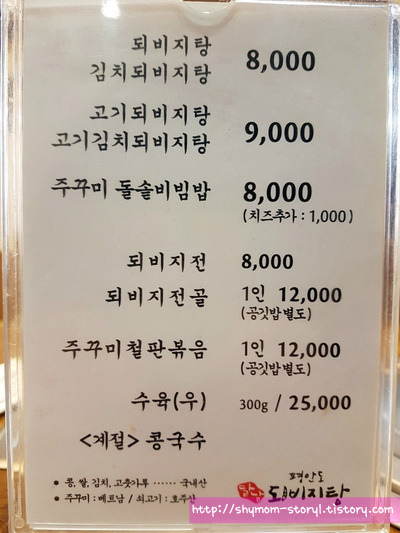 되비지탕
김치되비지탕 8,000
고기되비지탕
고기김치되비지탕 9,000
주꾸미 돌솥비빔밥 8,000
(치즈추가 : 1,000)
되비지전 8,000
되비지전골 1인 12,000
(공깃밥별도)
주꾸미철판볶음 1인 12,000
(공깃밥별도)
수육(우) 300g / 25,000
<계절> 콩국수
• 콩, 쌀, 김치, 고춧가루 ······ 국내산
• 주꾸미 : 베트남 / 쇠고기 : 호주산
평안도
되비지탕
http://shymom-story1.tistory.com